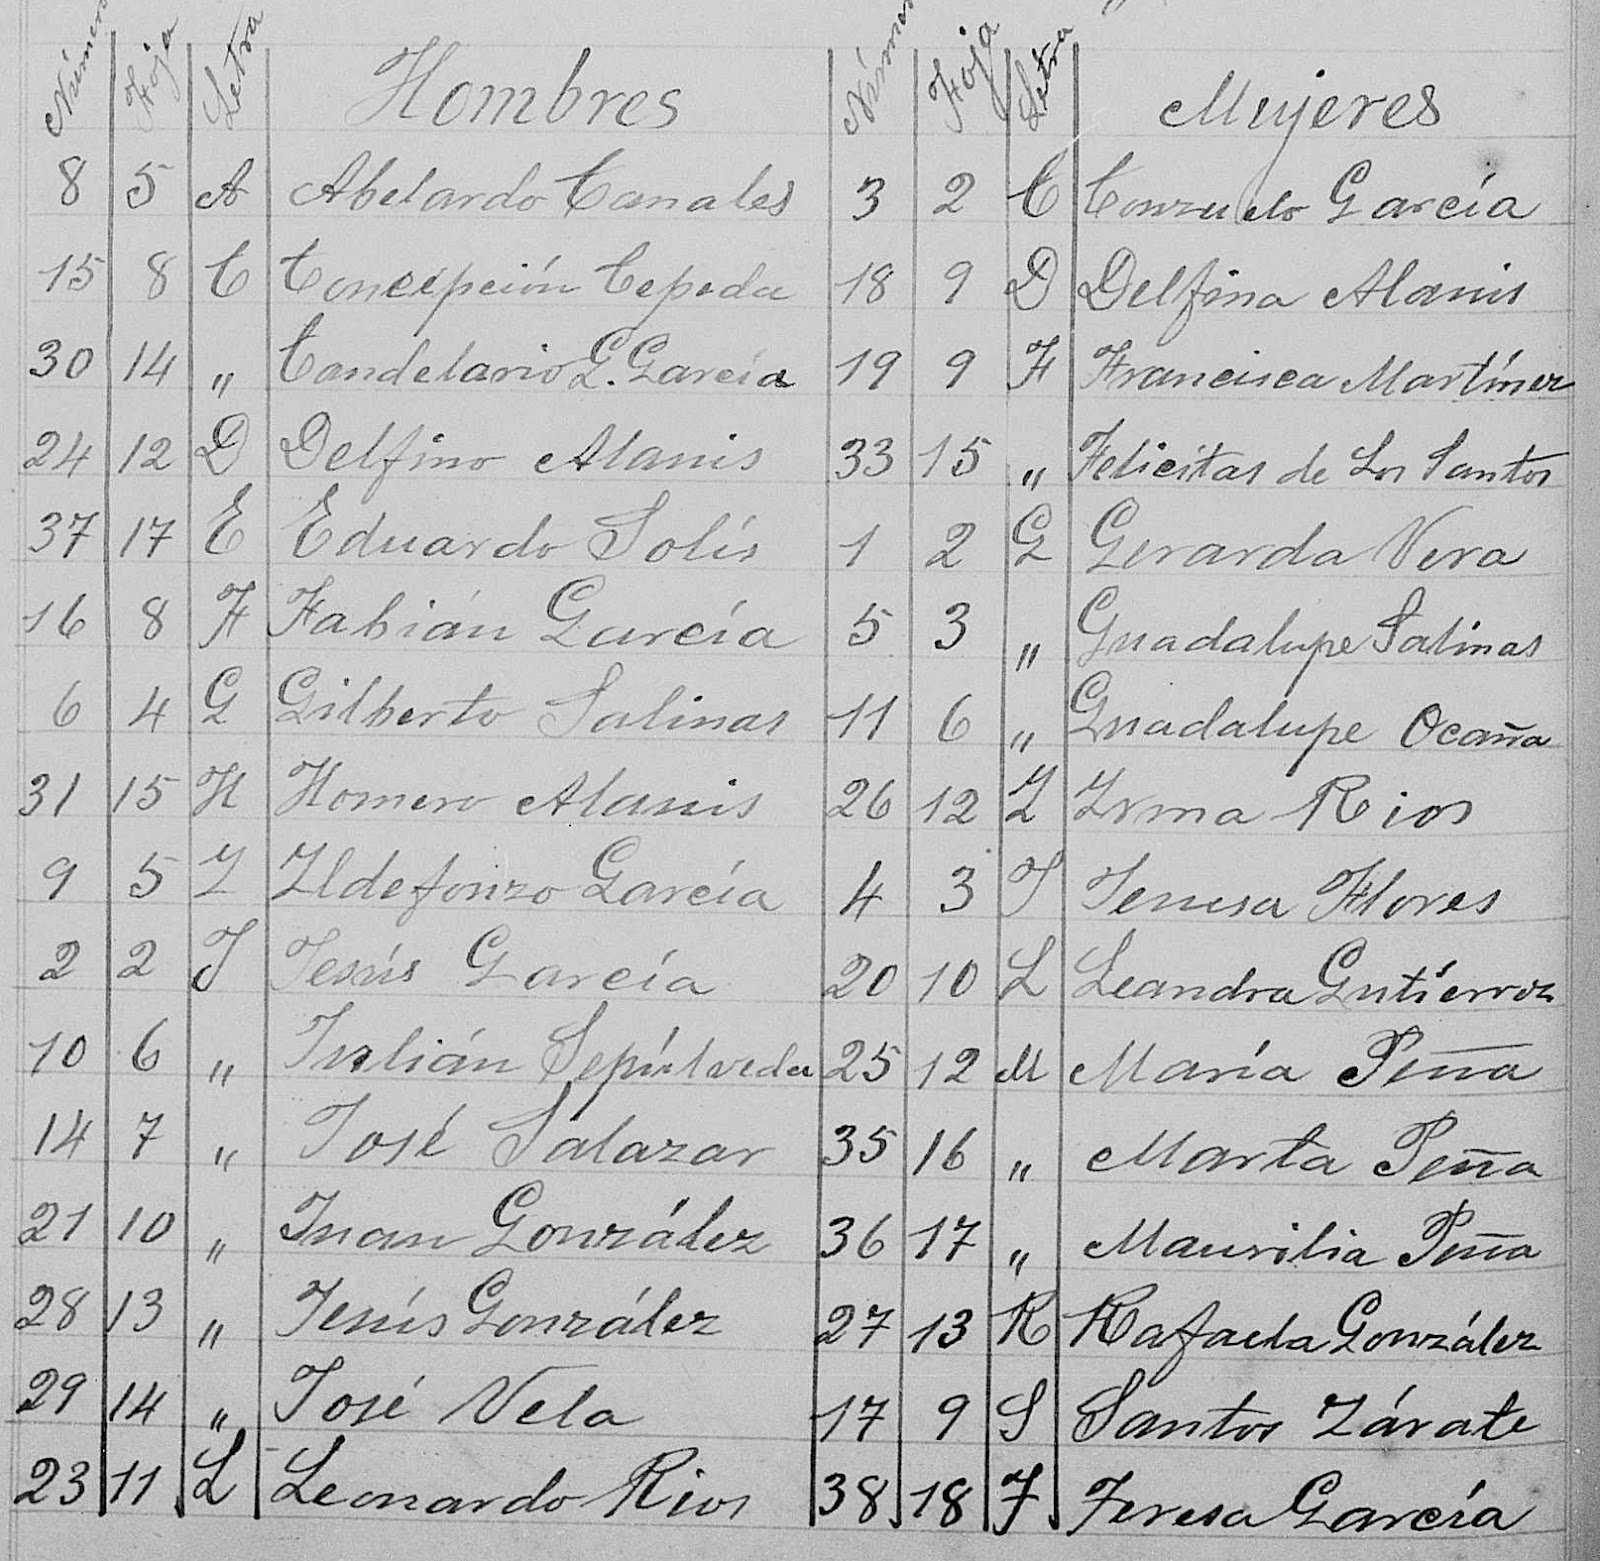 Número Foja Letra Hombres Número Foja Letra Mujeres
8 5 A Abelardo Canales 3 2 C Conzuelo García
15 8 C Concepción Cepeda 18 9 D Delfina Alanis
30 14 " Candelario G. García 19 9 F Francisca Martínez
24 12 D Delfino Alanis 33 15 " Felicitas de Los Santos
37 17 E Eduardo Solís 1 2 G Gerarda Vera
16 8 F Fabián García 5 3 " Guadalupe Salinas
6 4 G Gilberto Salinas 11 6 " Guadalupe Ocaña
31 15 H Homero Alanis 26 12 I Irma Rios
9 5 I Ildefonzo García 4 3 J Flores
2 2 J Jesús García 20 10 L Leandra Gutíerrez
10 6 " Julián Sepúlveda 25 12 M María Peña
14 7 " José Salazar 35 16 " Marta Peña
21 10 " Juan González 36 17 " Maurilia Peña
28 13 " Jesús González 27 13 R Rafaela González
29 14 " José Vela 17 9 S Santos Zárate
23 11 L Leonardo Rios 38 18 T Teresa García